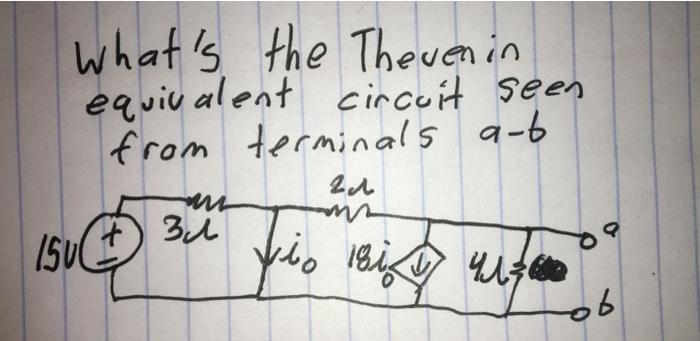 What's the Thevenin
equivalent circuit seen
from terminals a-b
2Ω
3Ω
a
15V
+
-
i₀
18i₀
4Ω
b